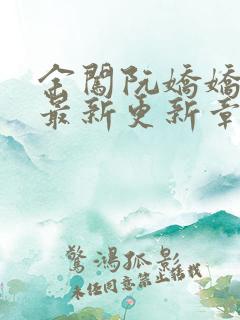 金闺阮嬌嬌
最新更新章
驚鴻孤影
未经同意禁止转载